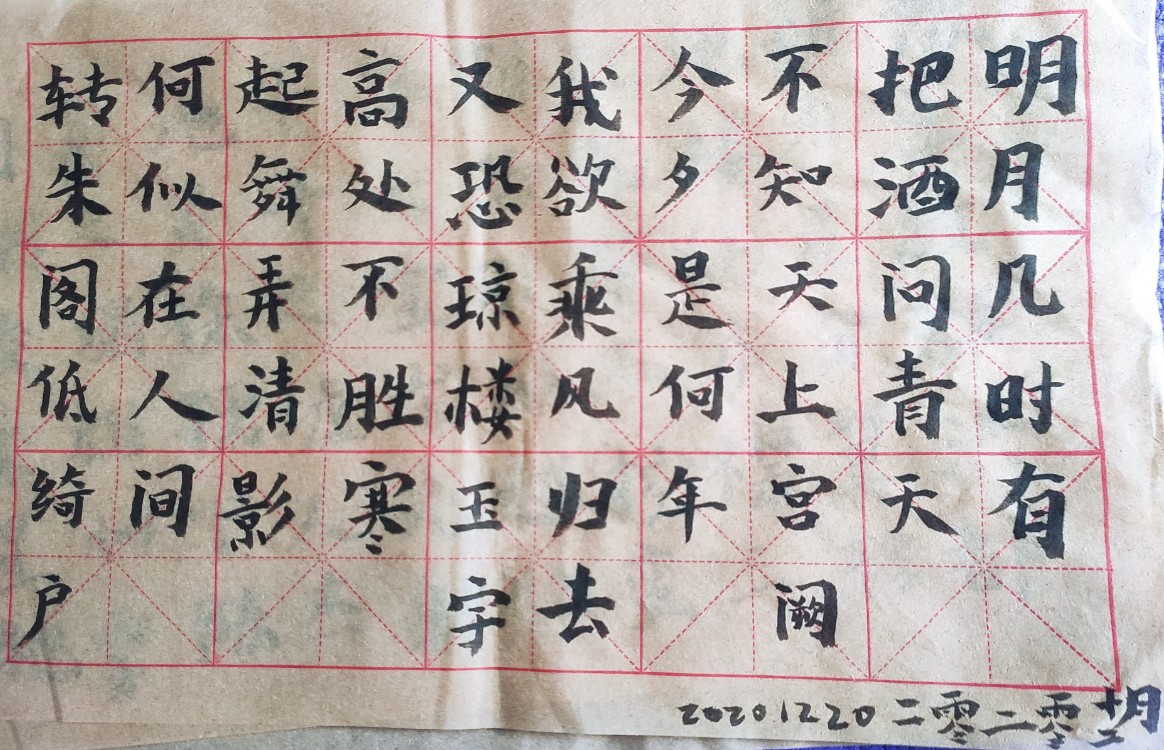 明月几时有
把酒问青天
不知天上宫阙
今夕是何年
我欲乘风归去
又恐琼楼玉宇
高处不胜寒
起舞弄清影
何似在人间
转朱阁低绮户
20201220 二零二零